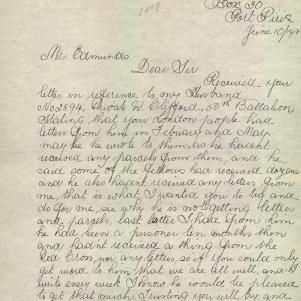 Box 30
Port Pirie
June 10/918
Mr Edmunds
Dear Sir
Received your
letter in reference to my Husband
No 2894, Private W. Clifford, 50th Battalion
Stating that your London people had
letters from him in Febuary and May.
may be he wrote to them, as he hadnt
received any parcels from them, and he
said some of the fellows had received dozens
and he also hadnt received any letters from
me, that is what I wanted you to try and
do for me, see why he is not getting letters
and parcels, last letter I had from him
he had been a prisoner ten months then
and hadnt received a thing from the
Red Cross, nor any letters, so if you could only
get word to him that we are all well, and I
write every week I know he would be pleased
to get that much, Trusting you will try and